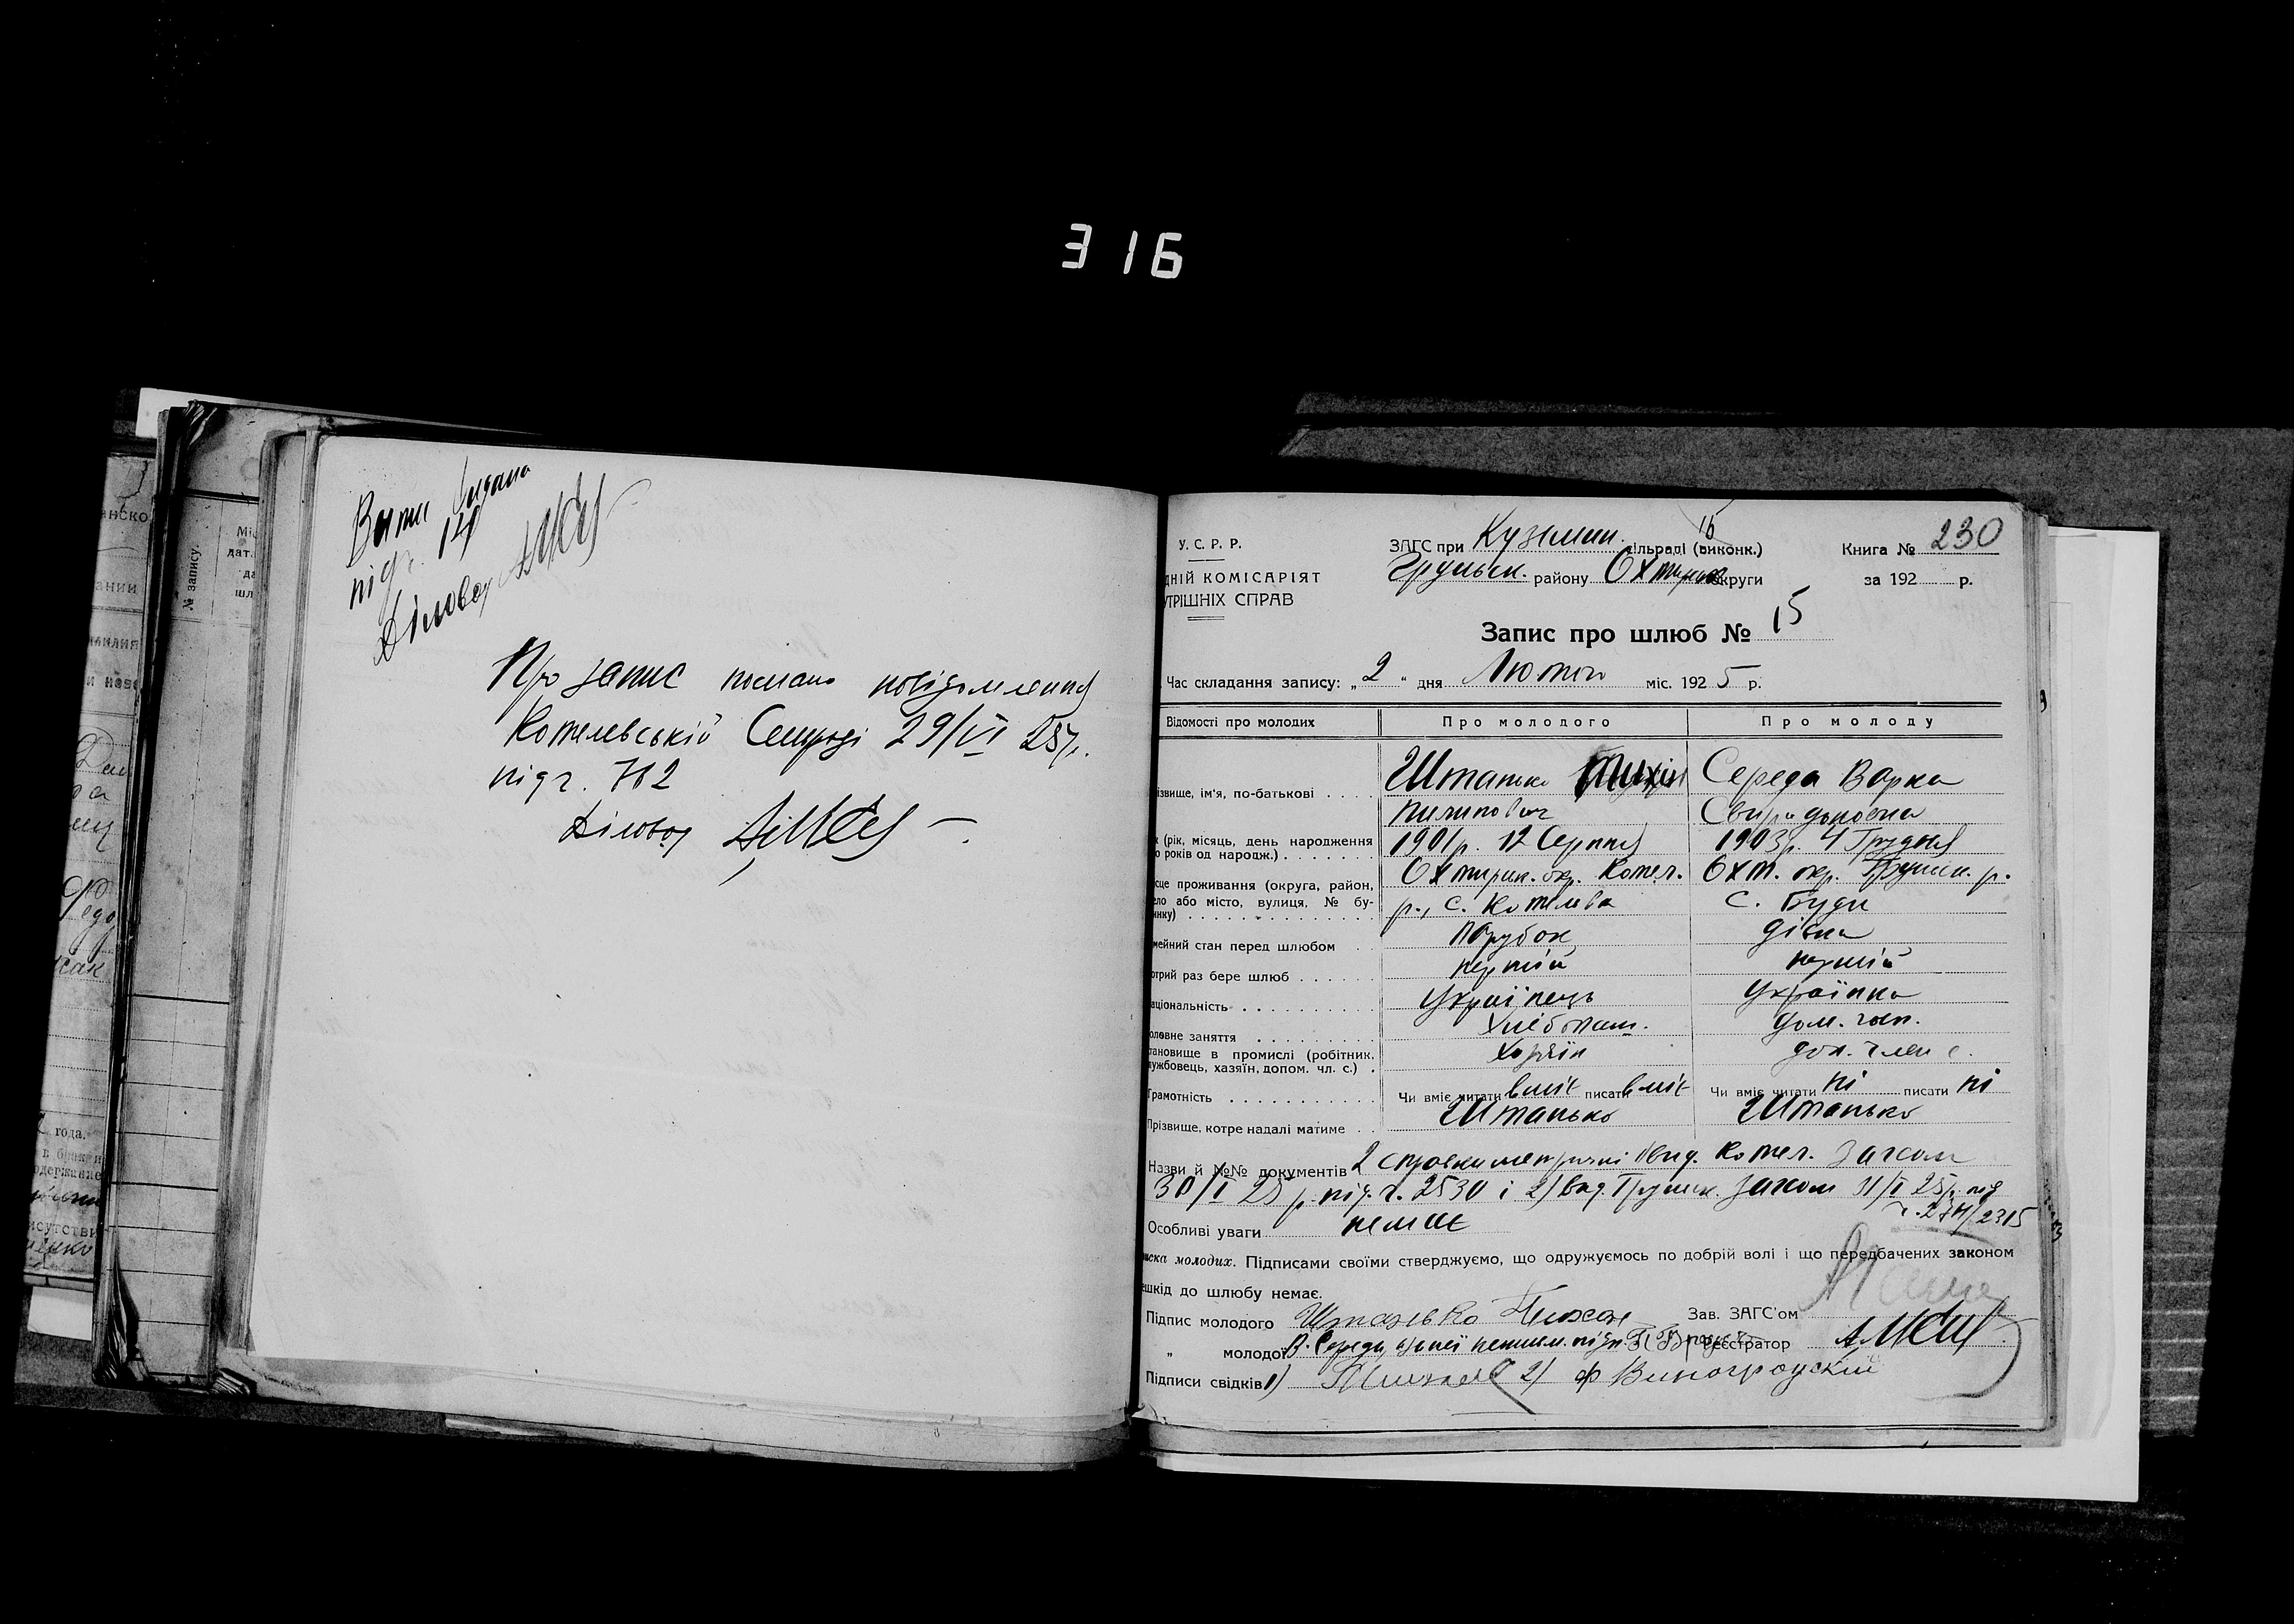 316
Витяг видано
під ч. 14
Діловод
Про запис послано повідомлення
Котелевській Сільраді 29/VI 25 р.
під ч. 762
Діловод
анско
ании
и нов
Міс
дат
да
шл
№ запису.
года.
исутстви
У. С. Р. Р.
ДНІЙ КОМІСАРІЯТ
УТРІШНІХ СПРАВ
15
ЗАГС при Кузьмин. сільраді (виконк.)
Грунськ. району Охтирськ округи
Книга № 230
за 192 р.
Запис про шлюб № 15
Час складання запису: „ 2 “ дня Лютого міс. 1925 р.
Відомості про молодих Про молодого Про молоду
ізвище, ім'я, по-батькові Штанько Тихін Середа Варка
Пилипович Свиридоновна
к (рік, місяць, день народження
о років од народж.) 1901 р. 12 Серпня 1903 р. 4 Грудня
сце проживання (округа, район, Охтирськ. окр. Котел. Охт. окр. Грунськ. р.
ело або місто, вулиця, № бу-
инку) р., с. Котельва с. Буди
мейний стан перед шлюбом парубок дівка
отрий раз бере шлюб перший перший
аціональність Українець Українка
оловне заняття Хлібопаш. дом. госп.
тановище в промислі (робітник,
ужбовець, хазяїн, допом. чл. с.) хазяїн доп. член с.
Грамотність Чи вміє читати вміє писати вміє Чи вміє читати ні писати ні
Прізвище, котре надалі матиме Штанько Штанько
Назви й №№ документів 2 справки метричні вид. Котел. Загсом
30/I 25 р. під ч. 2530 і 2) вид. Грунськ. Загсом 31/I 25 р. під
/2315
Особливі уваги немає
иска молодих. Підписами своїми стверджуємо, що одружуємось по добрій волі і що передбачених законом
ешкід до шлюбу немає.
Підпис молодого Штанько Тихон Зав. ЗАГС'ом
„ молодої В. Середа, а за неї неписьм. підп. Реєстратор
Підписи свідків 1) 2) Ф Виногродский